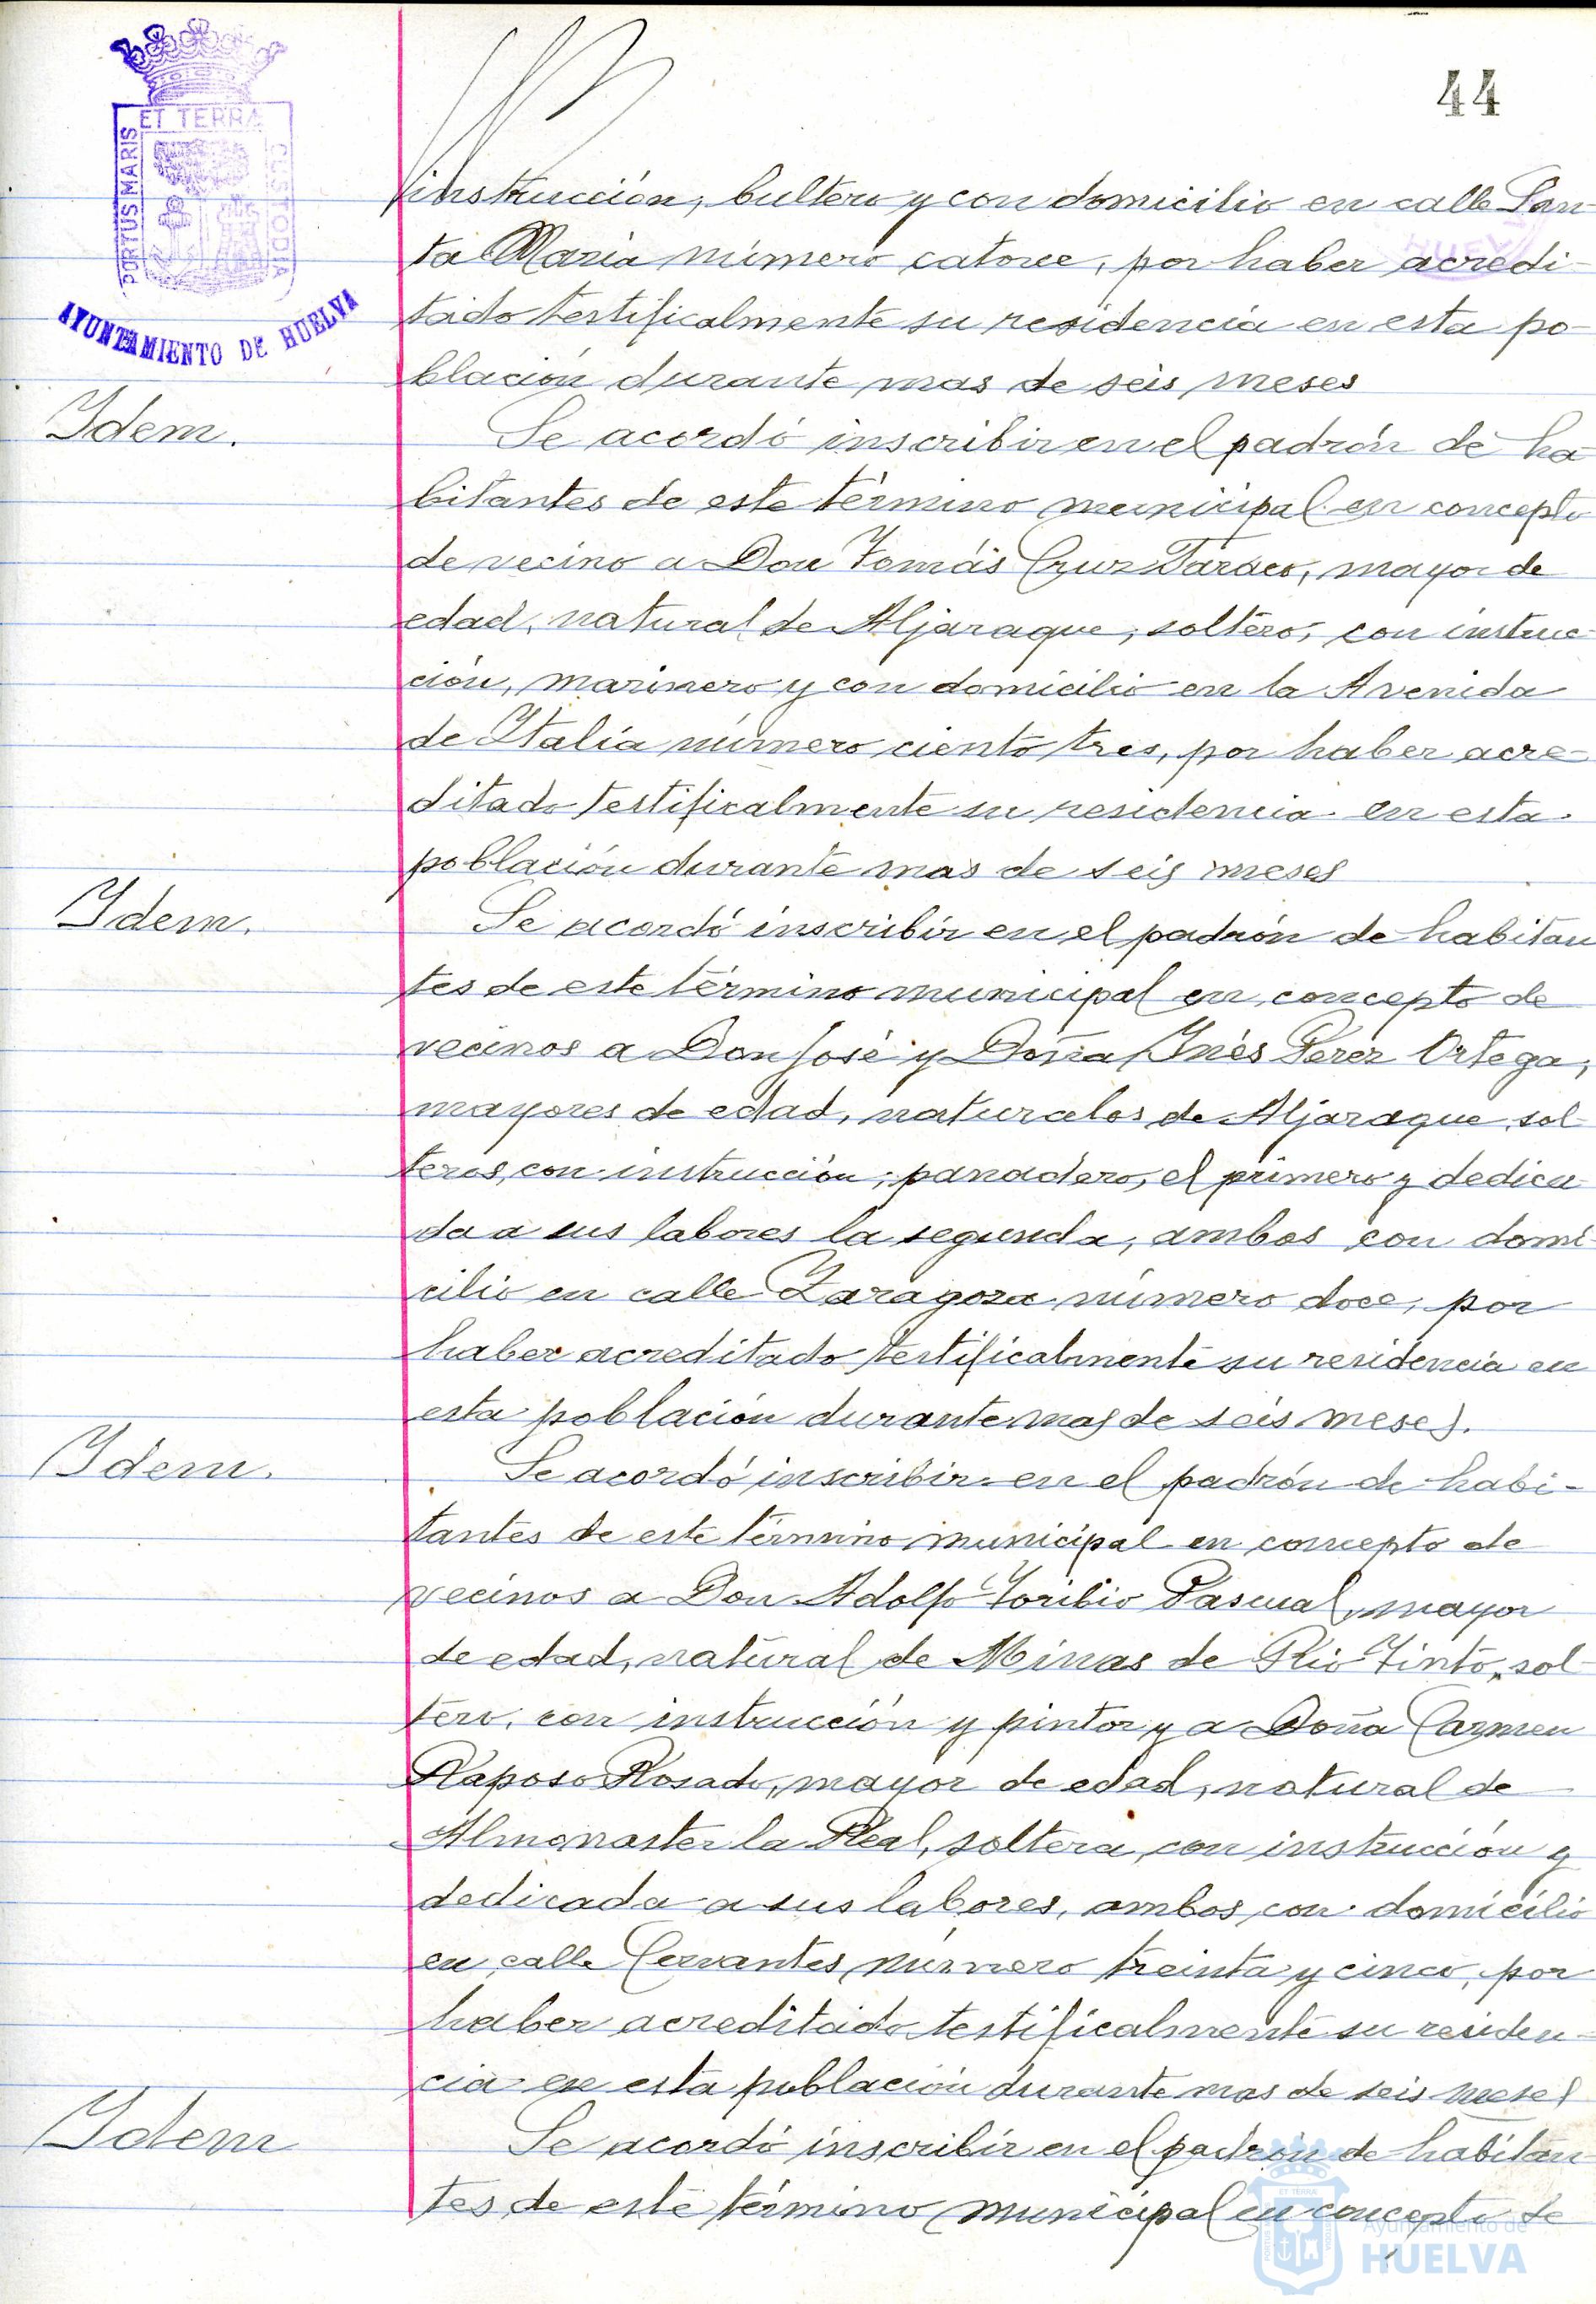 44
ET TERRA
PORTUS MARIS
CUSTODIA
AYUNTAMIENTO DE HUELVA
instrucción, bultero y con domicilio en calle San-
ta Maria número catorce, por haber acredi-
tado testificalmente su residencia en esta po-
blación durante mas de seis meses
Idem.
Se acordó inscribir en el padrón de ha-
bitantes de este término municipal en concepto
de vecino a Don Tomás Cruz mayor de
edad, natural de Aljaraque, soltero, con instruc-
ción, marinero y con domicilio en la Avenida
de Italia número ciento tres, por haber acre-
ditado testificalmente su residencia en esta
población durante mas de seis meses
Idem.
Se acordó inscribir en el padrón de habitan
tes de este término municipal en concepto de
vecinos a Don José y Doña Inés Perez Ortega,
mayores de edad, naturales de Aljaraque, sol-
teros, con instrucción, panadero, el primero y dedica-
da a sus labores la segunda, ambos con domi-
cilio en calle Zaragoza número doce, por
haber acreditado testificalmente su residencia en
esta población durante mas de seis meses.
Idem.
Se acordó inscribir en el padrón de habi-
tantes de este término municipal en concepto de
vecinos a Don Adolfo Toribio Pascual, mayor
de edad, natural de Minas de Rio Tinto, sol-
tero, con instrucción y pintor y a Doña Carmen
Raposo Rosado, mayor de edad, natural de
Almonaster la Real, soltera, con instrucción y
dedicada a sus labores, ambos con domicilio
en calle Cervantes número treinta y cinco, por
haber acreditado testificalmente su residen-
cia en esta población durante mas de seis meses
Idem
Se acordó inscribir en el padrón de habitan
tes de este término municipal en concepto de
Ayuntamiento de
HUELVA